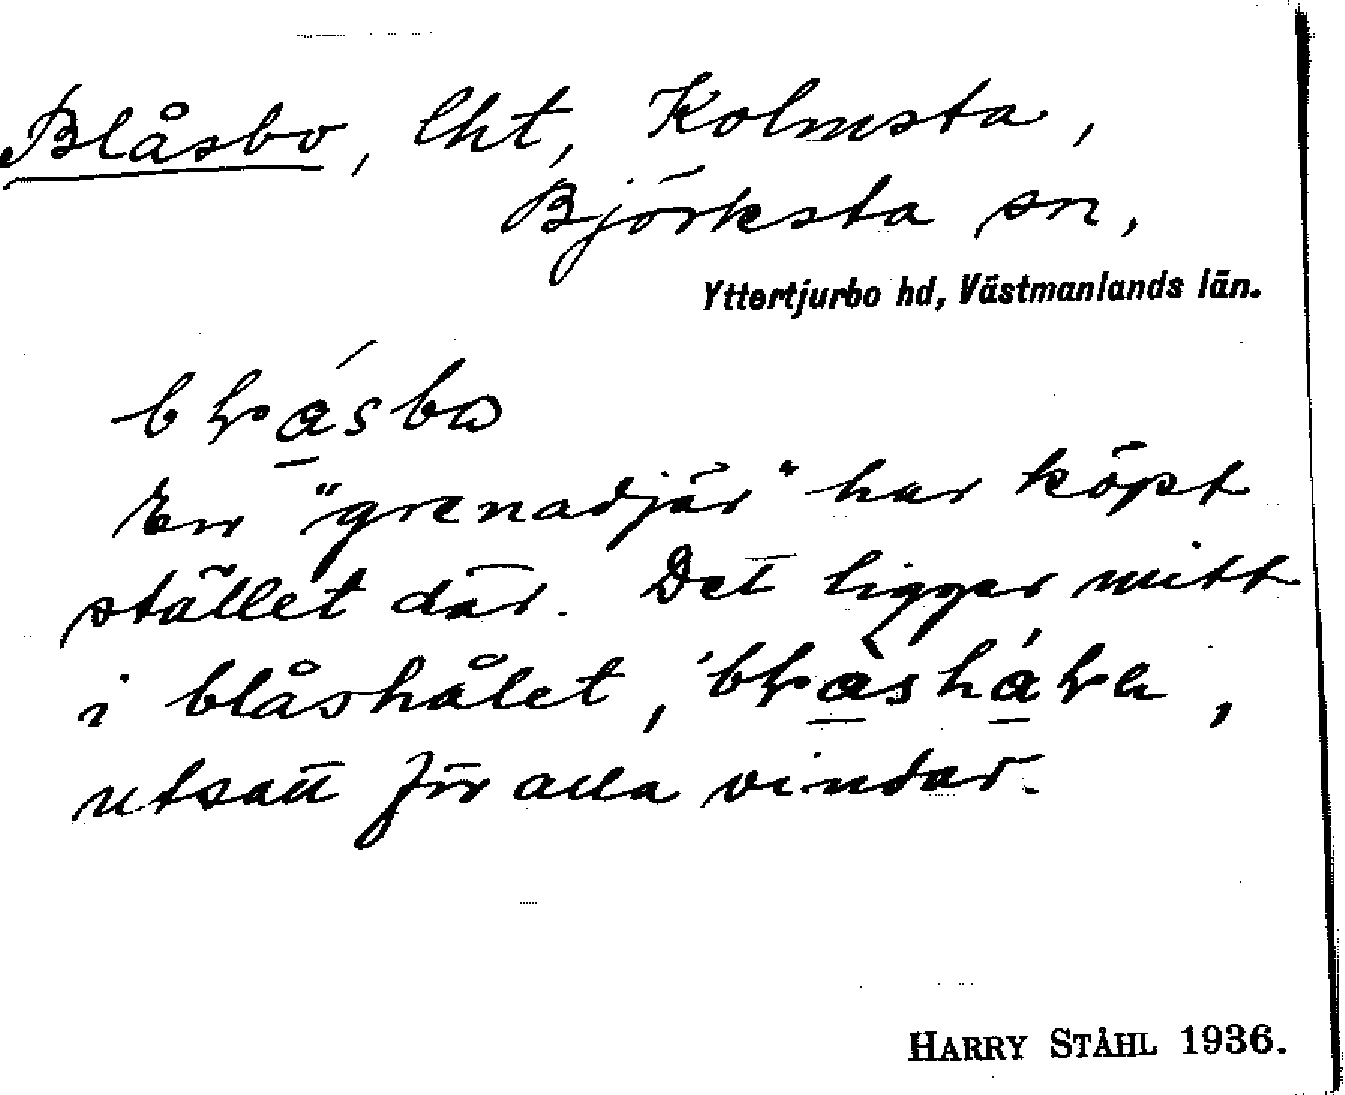 Blåsbo, lht, Kolmsta,
Björksta sn,
Yttertjurbo hd, Västmanlands län.
En "grenadjär" har köpt
stället där. Det ligger mitt
i blåshålet,
utsatt för alla vindar.
HARRY STÅHL 1936.